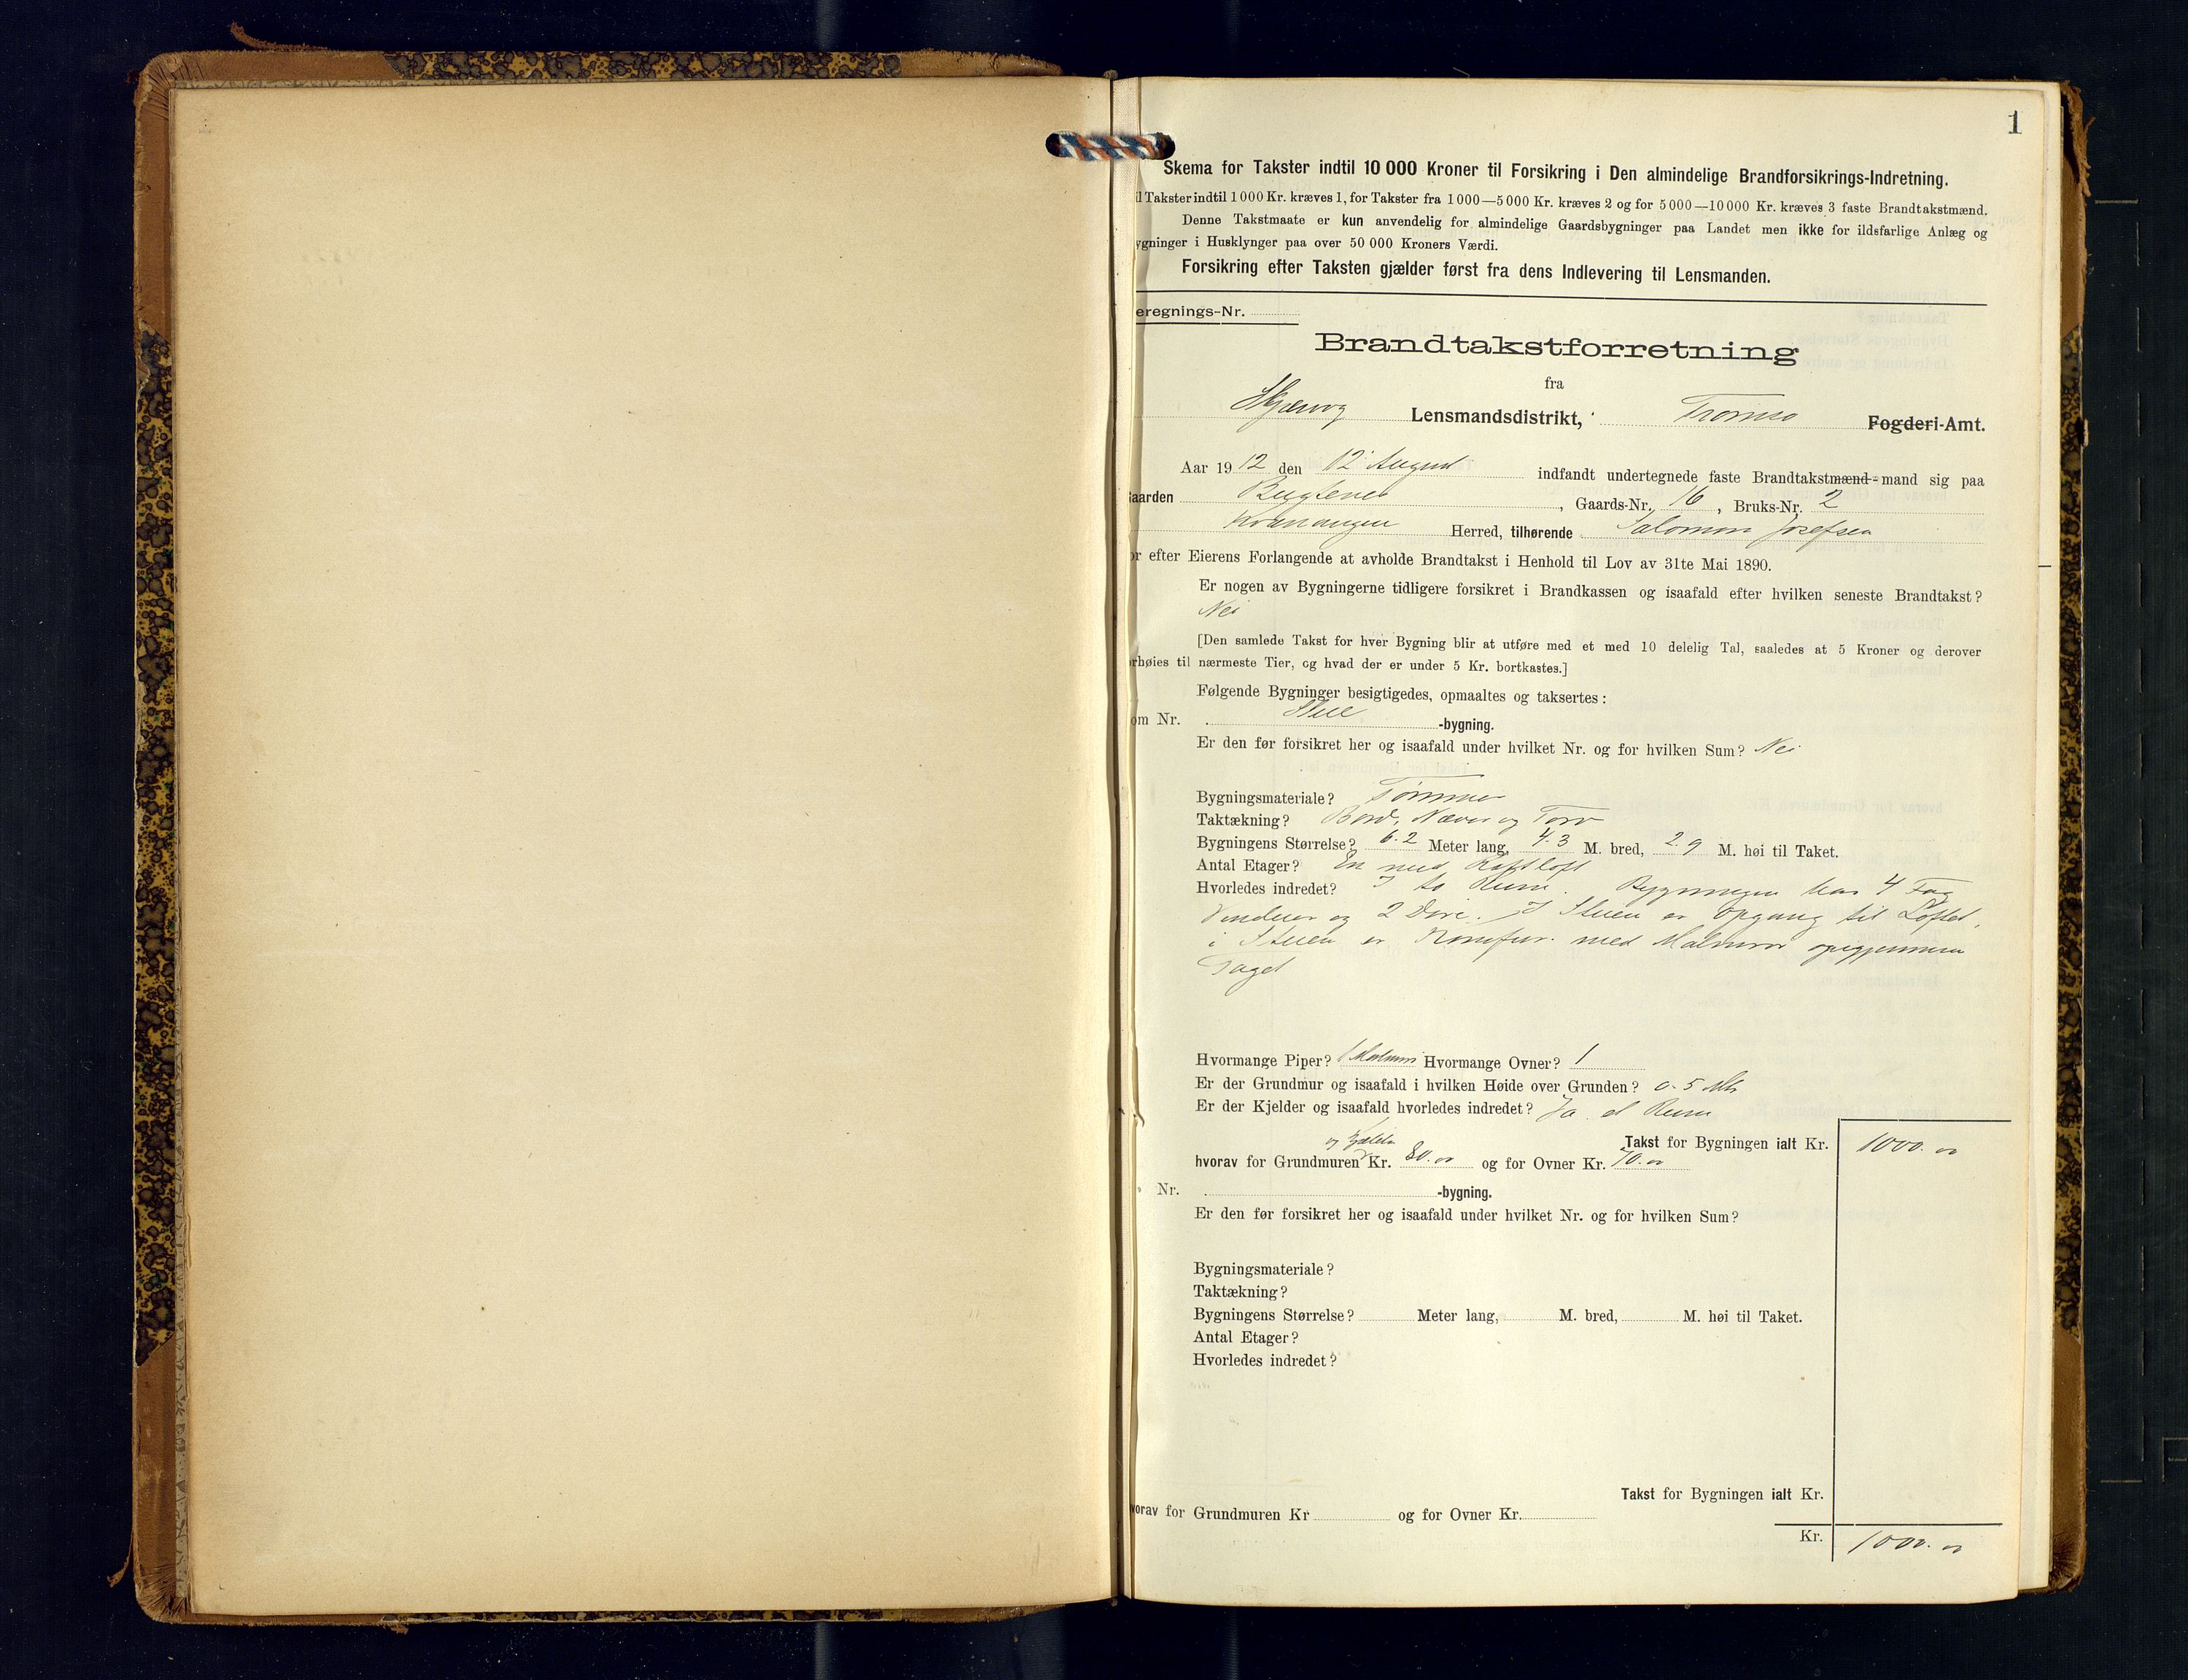 1
Skema for Takster indtil 10 000 Kroner til Forsikring i Den almindelige Brandforsikrings-Indretning.
il Takster indtil 1 000 Kr. kræves 1, for Takster fra 1 000—5 000 Kr. kræves 2 og for 5 000—10 000 Kr. kræves 3 faste Brandtakstmænd.
Denne Takstmaate er kun anvendelig for almindelige Gaardsbygninger paa Landet men ikke for ildsfarlige Anlæg og
ygninger i Husklynger paa over 50 000 Kroners Værdi.
Forsikring efter Taksten gjælder først fra dens Indlevering til Lensmanden.
eregnings-Nr.
Brandtakstforretning
fra
Skjervø Lensmandsdistrikt, Tromsø Fogderi-Amt.
Aar 1912 den 12 August indfandt undertegnede faste Brandtakstmænd-mand sig paa
aarden Bugtenes, Gaards-Nr. 16, Bruks-Nr. 2
Kvænangen Herred, tilhørende Salomon Josefsen
or efter Eierens Forlangende at avholde Brandtakst i Henhold til Lov av 31te Mai 1890.
Er nogen av Bygningerne tidligere forsikret i Brandkassen og isaafald efter hvilken seneste Brandtakst?
Nei
[Den samlede Takst for hver Bygning blir at utføre med et med 10 delelig Tal, saaledes at 5 Kroner og derover
rhøies til nærmeste Tier, og hvad der er under 5 Kr. bortkastes.]
Følgende Bygninger besigtigedes, opmaaltes og taksertes:
om Nr. Stue -bygning.
Er den før forsikret her og isaafald under hvilket Nr. og for hvilken Sum? Nei
Bygningsmateriale? Tømmer
Taktækning? Bord, Næver og Torv
Bygningens Størrelse? 6.2 Meter lang, 4.3 M. bred, 2.9 M. høi til Taket.
Antal Etager? En med Loft
Hvorledes indredet? I to Rum. Bygningen har 4 Fag
Vinduer og 2 Døre. I Stuen er Opgang til Loftet,
i Stuen er Komfur med Malmrør opigjennem
Taget
Hvormange Piper? 1 Malmrør Hvormange Ovner? 1
Er der Grundmur og isaafald i hvilken Høide over Grunden? 0.5 Mtr
Er der Kjelder og isaafald hvorledes indredet? Ja et Rum
Takst for Bygningen ialt Kr. 1000.00
og Kjelder
hvorav for Grundmuren Kr. 80.00 og for Ovner Kr. 70.00
Nr. -bygning.
Er den før forsikret her og isaafald under hvilket Nr. og for hvilken Sum?
Bygningsmateriale?
Taktækning?
Bygningens Størrelse? Meter lang, M. bred, M. høi til Taket.
Antal Etager?
Hvorledes indredet?
Takst for Bygningen ialt Kr.
vorav for Grundmuren Kr og for Ovner Kr.
Kr. 1000.00